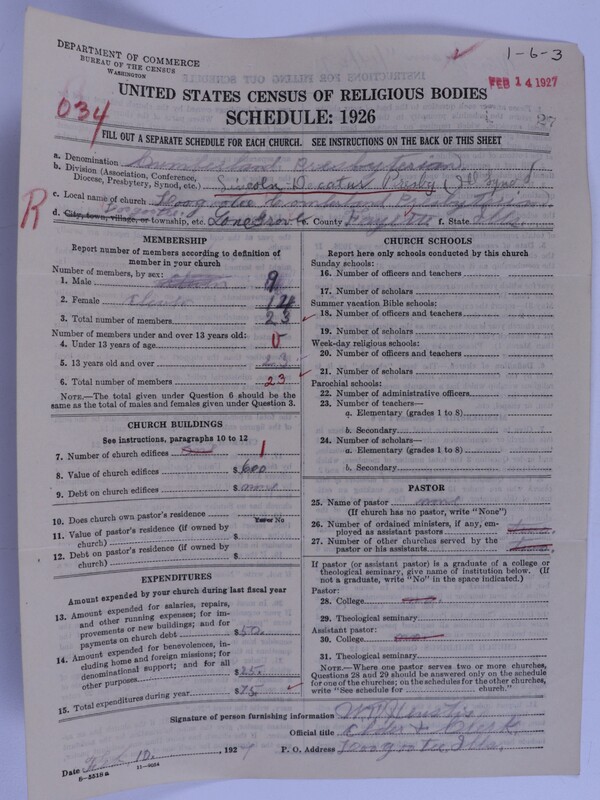 1-6-3
DEPARTMENT OF COMMERCE
BUREAU OF THE CENSUS
WASHINGTON
FEB 14 1927
UNITED STATES CENSUS OF RELIGIOUS BODIES
034
SCHEDULE: 1926
FILL OUT A SEPARATE SCHEDULE FOR EACH CHURCH. SEE INSTRUCTIONS ON THE BACK OF THIS SHEET
a. Denomination Cumberland Presbyterian
b. Division (Association, Conference, Diocese, Presbytery, Synod, etc.) Lincoln-Decatur Presby (Ill. Syno.)
R
c. Local name of church Cumberland Presbyterian
d. City, town, village, or township, etc. Lone Grove e. County Fayette f. State Ills.
MEMBERSHIP
Report number of members according to definition of
member in your church
Number of members, by sex:
1. Male 9
2. Female 14
3. Total number of members 23
Number of members under and over 13 years old:
4. Under 13 years of age 0
5. 13 years old and over 23
6. Total number of members 23
NOTE.—The total given under Question 6 should be
same as the total of males and females given under Question 3.
CHURCH BUILDINGS
See instructions, paragraphs 10 to 12
7. Number of church edifices 1
8. Value of church edifices $600
9. Debt on church edifices $none
10. Does church own pastor's residence Yes or No
11. Value of pastor's residence (if owned by
church) $
12. Debt on pastor's residence (if owned by
church) $
EXPENDITURES
Amount expended by your church during last fiscal year
13. Amount expended for salaries, repairs,
and other running expenses; for im-
provements or new buildings; and for
payments on church debt $50.
14. Amount expended for benevolences, in-
cluding home and foreign missions; for
denominational support; and for all
other purposes $25.
15. Total expenditures during year $75
CHURCH SCHOOLS
Report here only schools conducted by this church
Sunday schools:
16. Number of officers and teachers
17. Number of scholars
Summer vacation Bible schools:
18. Number of officers and teachers
19. Number of scholars
Week-day religious schools:
20. Number of officers and teachers
21. Number of scholars
Parochial schools:
22. Number of administrative officers
23. Number of teachers—
a. Elementary (grades 1 to 8)
b. Secondary
24. Number of scholars—
a. Elementary (grades 1 to 8)
b. Secondary
PASTOR
25. Name of pastor none
(If church has no pastor, write "None")
26. Number of ordained ministers, if any, em-
ployed as assistant pastors
27. Number of other churches served by the
pastor or his assistants
If pastor (or assistant pastor) is a graduate of a college or
theological seminary, give name of institution below. (If
not a graduate, write "No" in the space indicated.)
Pastor:
28. College
29. Theological seminary
Assistant pastor:
30. College
31. Theological seminary
NOTE.—Where one pastor serves two or more churches,
Questions 28 and 29 should be answered only on the schedule
for one of the churches; on the schedules for the other churches,
write "See schedule for church."
Signature of person furnishing information
Official title Elder & Clerk
Date Feb. 10, 1927 P. O. Address Ills.
6-5518a 11-9024